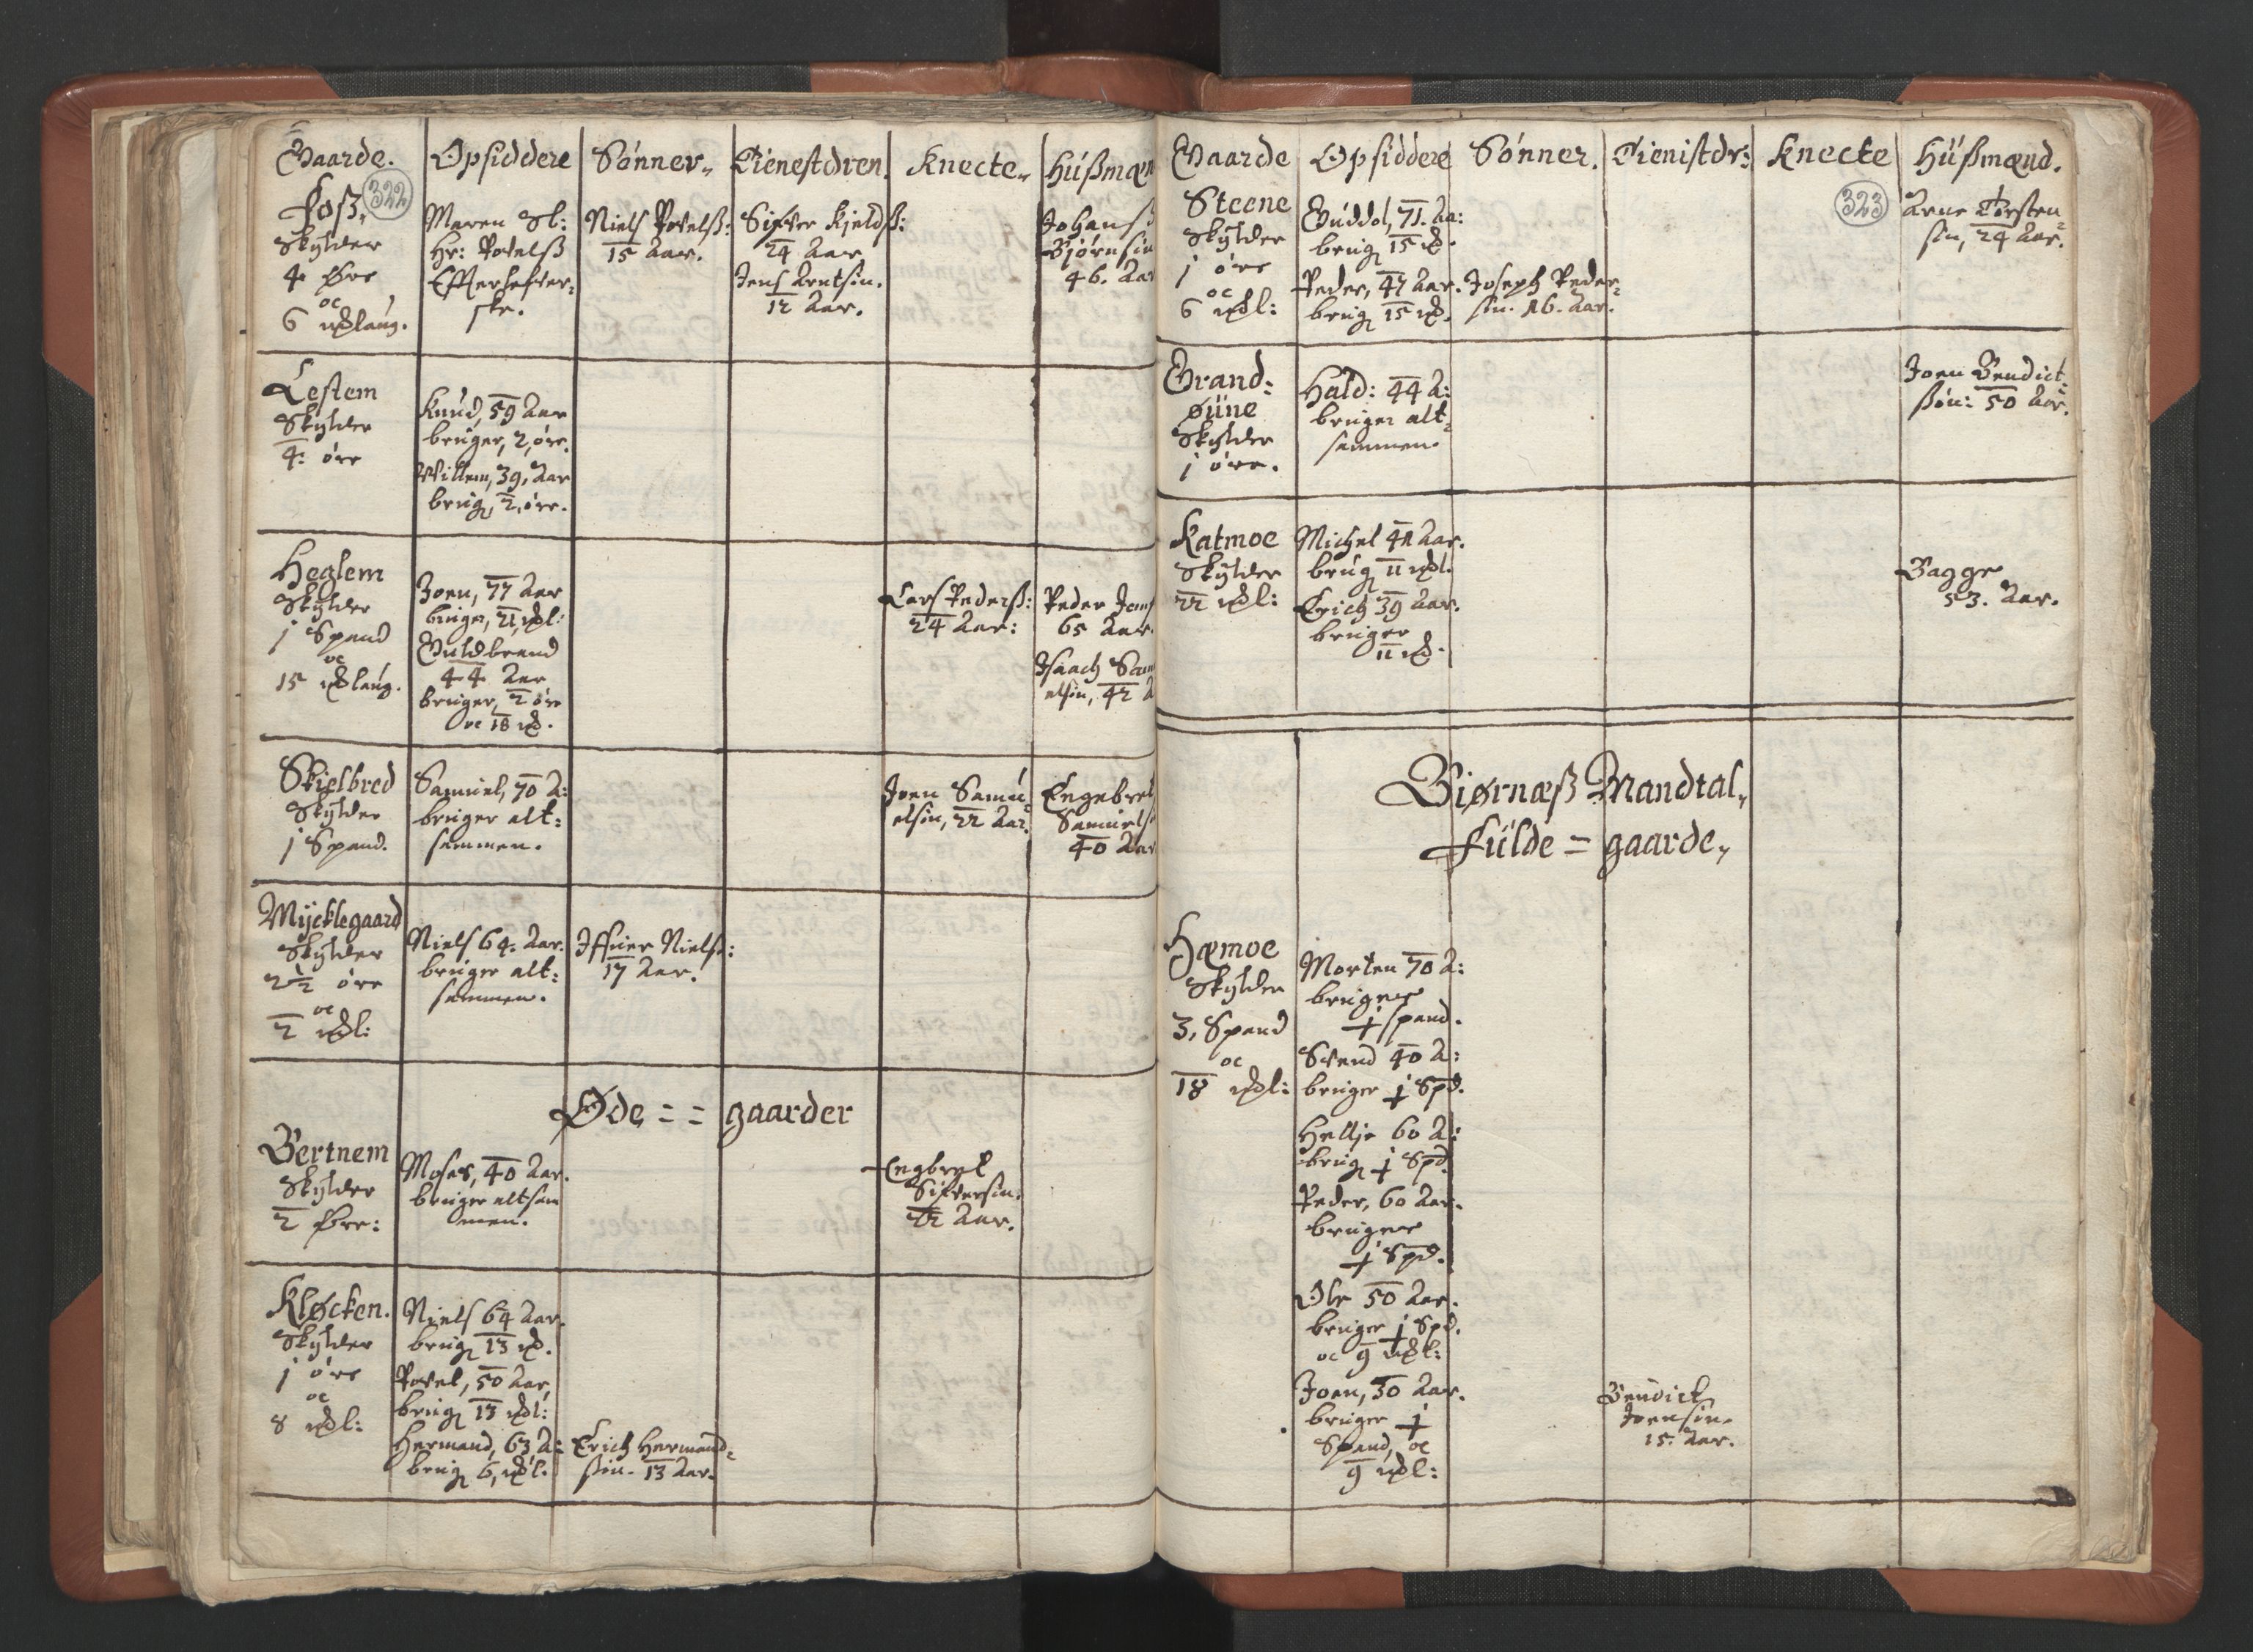 Gaarde.
Opsiddere
Sønner
Tienestdren.
Knecte
Húßmæn
322
Foß
Skÿlder
4 Øre
oc
6 mdlaug.
Maren Sl:
Hr: Povelß
Effterlefver-
ske.
Niels Povelß:
15 Aar.
Sifver Kieldß:
24 Aar
Jens Arntsøn.
12 Aar.
Johanß
Biørnsøn
46. Aar
Lestem
Skÿlder
4: øre
Knud, 59 Aar
bruger, 2, øre.
Willem, 39, Aar
brug, 2, øre.
Heglem
Skÿlder
j Spand
oc
15 mdlaug.
Joen, 77 Aar
bruger, 21 mdl:
Guldbrand
44 Aar
bruger, 2 øre
oc 18 md.
Lars Pederß:
24 Aar:
Peder Jens
65 Aar
Isaach Sam
elsøn, 42 A
Skielbred
Skÿlder
j Spand.
Samuel, 70 A:
bruger alt-
sammen.
Joen Samu-
elsøn, 22 Aar.
Engebret
Samuels
40 Aar
Mÿcklegaard
Skÿlder
2½ øre
oc
2 mdl:
Niels 64. Aar.
bruger alt-
sammen.
Iffuer Nielß:
17 Aar.
Øde = = gaarder
Bertnem
Skÿlder
2 Øre:
Moses, 40 Aar.
bruger altsam
men.
Engbret
Sifversøn.
22 Aar.
Kløcken.
Skÿlder
j øre
oc
8 mdl:
Niels 64 Aar.
brug 13 md.
Povel, 50 Aar,
brug 13 mdl:
Hermand, 63 A:
brug 6, mdl.
Erich Hermand-
søn. 13 Aar.
Gaarde
Opsiddere
Sønner.
Tienistdr:
Knecte
Húßmænd.
323
Steene
Skÿlder
j øre
oc
6 mdl:
Guddol, 71. Aa:
brug 15 md.
Peder, 47 Aar.
brug 15 md.
Joseph Peder-
søn. 16. Aar.
Arne Torsten-
søn, 24 Aar.
Grand-
øüne
Skÿlder
j øre.
Hald: 44 A:
bruger alt-
sammen.
Joen Bendict-
ßøn: 50 Aar.
Katmoe
Skÿlder
22 mdl:
Michel 41 Aar.
brug 11 mdl.
Erich 39 Aar.
bruger
11 md.
Bagge
53. Aar.
Biørnæß Mandtal,
Fülde = gaarde,
Hæmoe
Skÿlder
3, Spand
oc
18 mdl:
Morten 70 A:
bruger
½ spand.
Svend 40 A:
bruger ½ Spd.
Hellje 60 A:
brug ½ Spd.
Peder, 60 Aar.
bruger
½ Spd.
Ole 50 Aar.
bruger ½ Spd.
oc 9 mdl:
Joen, 50 Aar.
bruger ½
Spand, oc
9 mdl:
Bendict
Joensøn.
15. Aar.